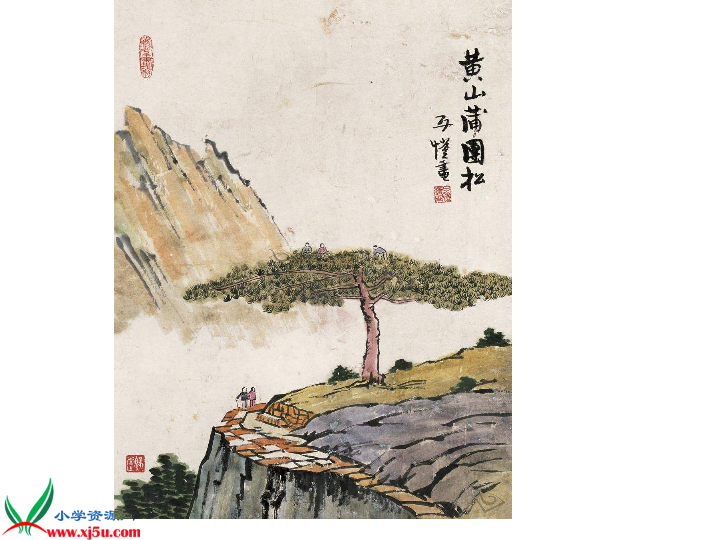 黄山蒲團松
子愷畫
小学资源
www.xj5u.com